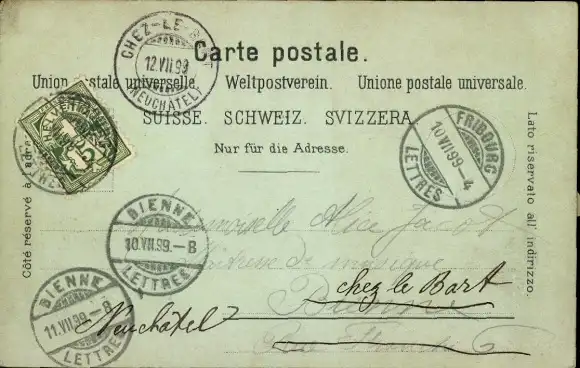 CHEZ-LE-BART
12.VII.99
(NEUCHÂTEL)
Carte postale.
Union postale universelle. Weltpostverein. Unione postale universale.
SUISSE. SCHWEIZ. SVIZZERA.
Nur für die Adresse.
Côté réservé à
Lato riservato all' indirizzo.
HELVETIA
5
FRIBOURG
10.VII.99.-4
LETTRES
BIENNE
10.VII.99.-8
LETTRES
BIENNE
11.VII.99.-8
LETTRES
Mademoiselle Alice Jacot
Maîtresse de musique
Bienne
chez le Bart
Neuchâtel
Rue